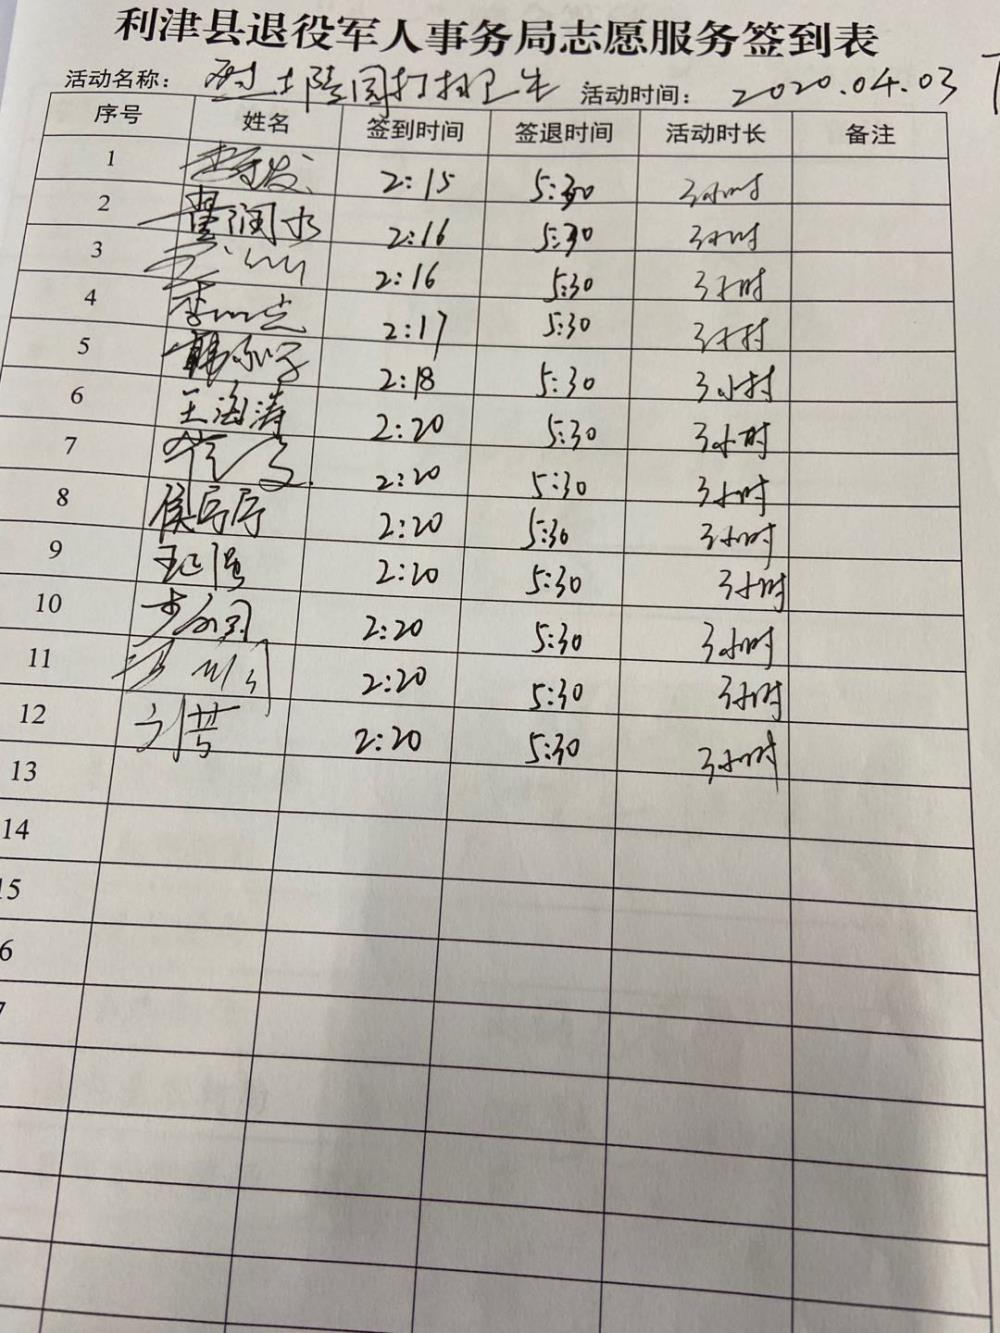 利津县退役军人事务局志愿服务签到表
活动名称： 烈士陵园打扫卫生 活动时间： 2020.04.03 下
序号 姓名 签到时间 签退时间 活动时长 备注
1 2:15 5:30 3小时
2 润水 2:16 5:30 3小时
3 2:16 5:30 3小时
4 李 2:17 5:30 3小时
5 韩 2:18 5:30 3小时
6 王海涛 2:20 5:30 3小时
7 2:20 5:30 3小时
8 侯 2:20 5:30 3小时
9 王 强 2:20 5:30 3小时
10 2:20 5:30 3小时
11 2:20 5:30 3小时
12 刘芳 2:20 5:30 3小时
13
14
15
6
7